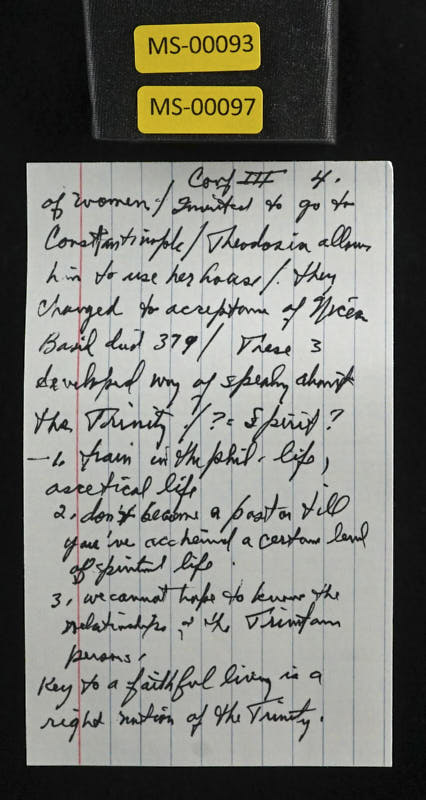 MS-00093
MS-00097
Conf III 4.
of women / Invited to go to
Constantinople / Theodosia allows
him to use her house / . they
changed to acceptance of Nicea
Basil died 379 / These 3
developed way of speaking about
the Trinity / ? = Spirit ?
- 1. train in the phil. life,
ascetical life
2. don't become a pastor till
you've achieved a certain level
of spiritual life .
3. we cannot hope to know the
relationships of the Trinitarian
persons.
Key to a faithful living is a
right notion of the Trinity.